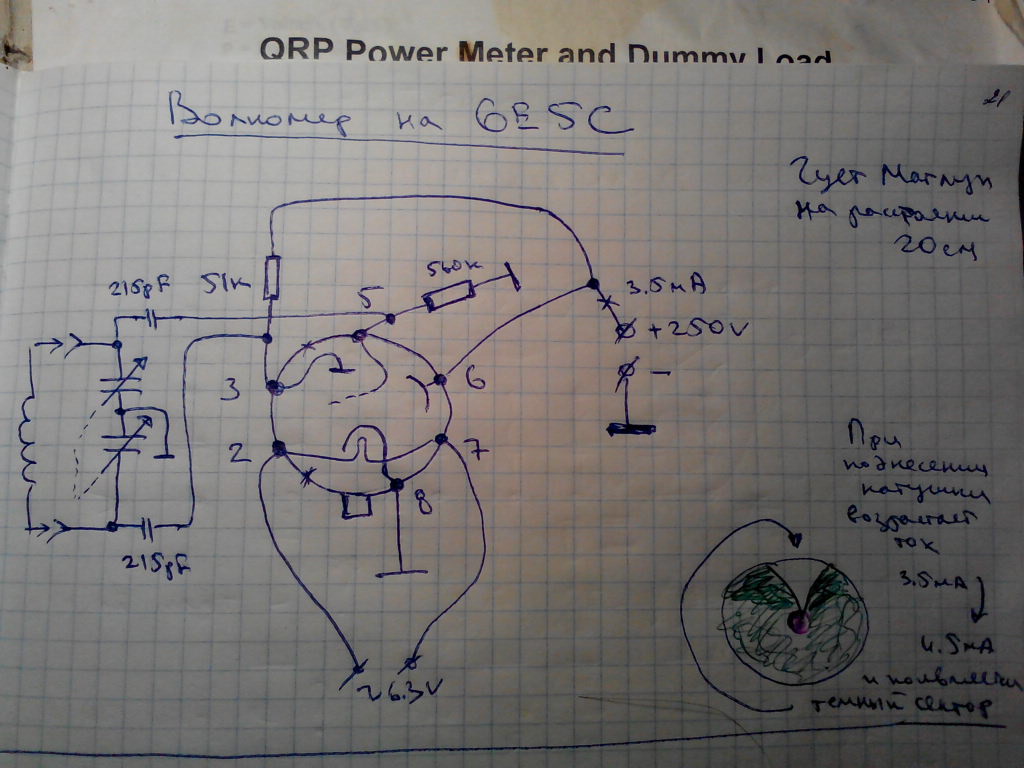 QRP Power Meter and Dummy Load
21
Волномер на 6Е5С
На расстоянии
20см
215pF
51к
5
560к
3.5мА
+250V
3
6
-
2
7
8
215pF
~6.3V
При
поднесении
катушки
возрастает
ток
3.5мА
4.5мА
и появляется
темный сектор